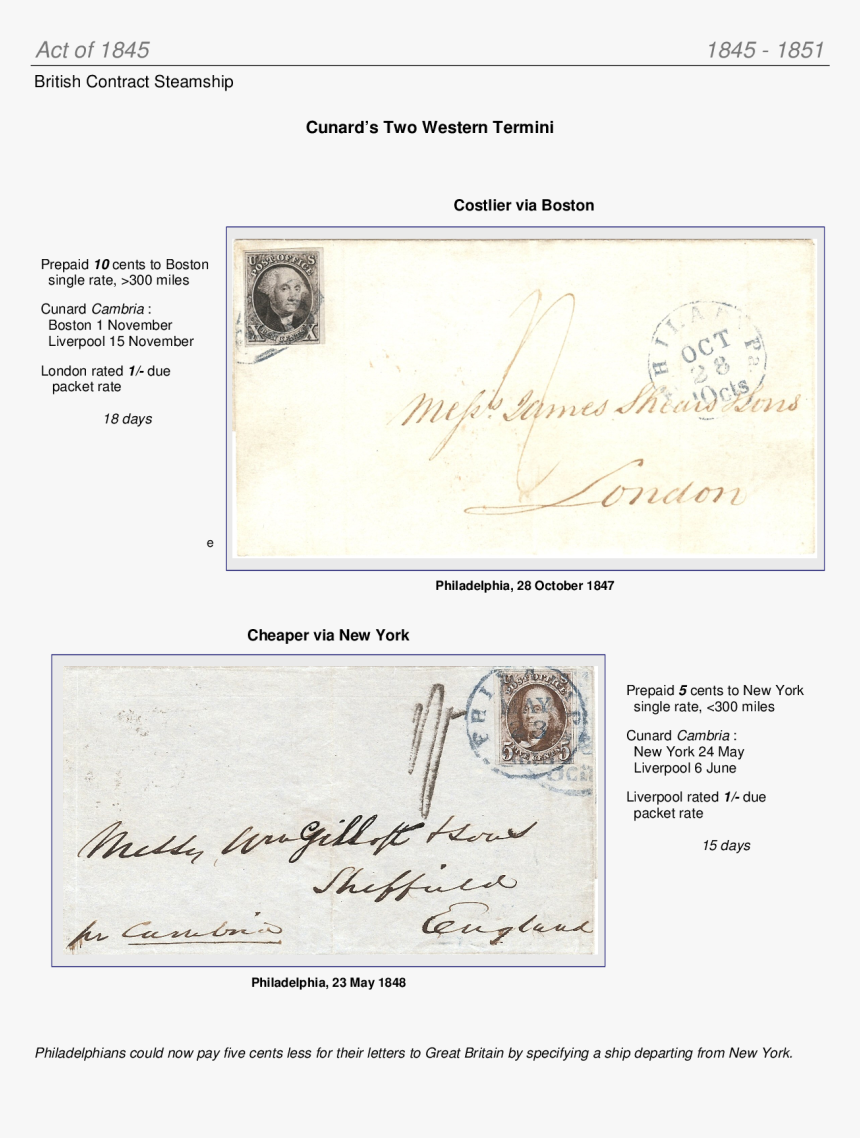 Act of 1845
1845 - 1851
British Contract Steamship
Cunard's Two Western Termini
Costlier via Boston
Prepaid 10 cents to Boston
single rate, >300 miles
Cunard Cambria :
Boston 1 November
Liverpool 15 November
London rated 1/- due
packet rate
18 days
e
U S
POST OFFICE
X X
PHILADA Pa.
OCT
28
10cts
Messrs James Shears & Sons
London
Philadelphia, 28 October 1847
Cheaper via New York
POST OFFICE
5 FIVE CENTS 5
PHILADA
MAY
23
Messrs Wm Gillott & Sons
Sheffield
England
pr Cambria
Philadelphia, 23 May 1848
Prepaid 5 cents to New York
single rate, <300 miles
Cunard Cambria :
New York 24 May
Liverpool 6 June
Liverpool rated 1/- due
packet rate
15 days
Philadelphians could now pay five cents less for their letters to Great Britain by specifying a ship departing from New York.